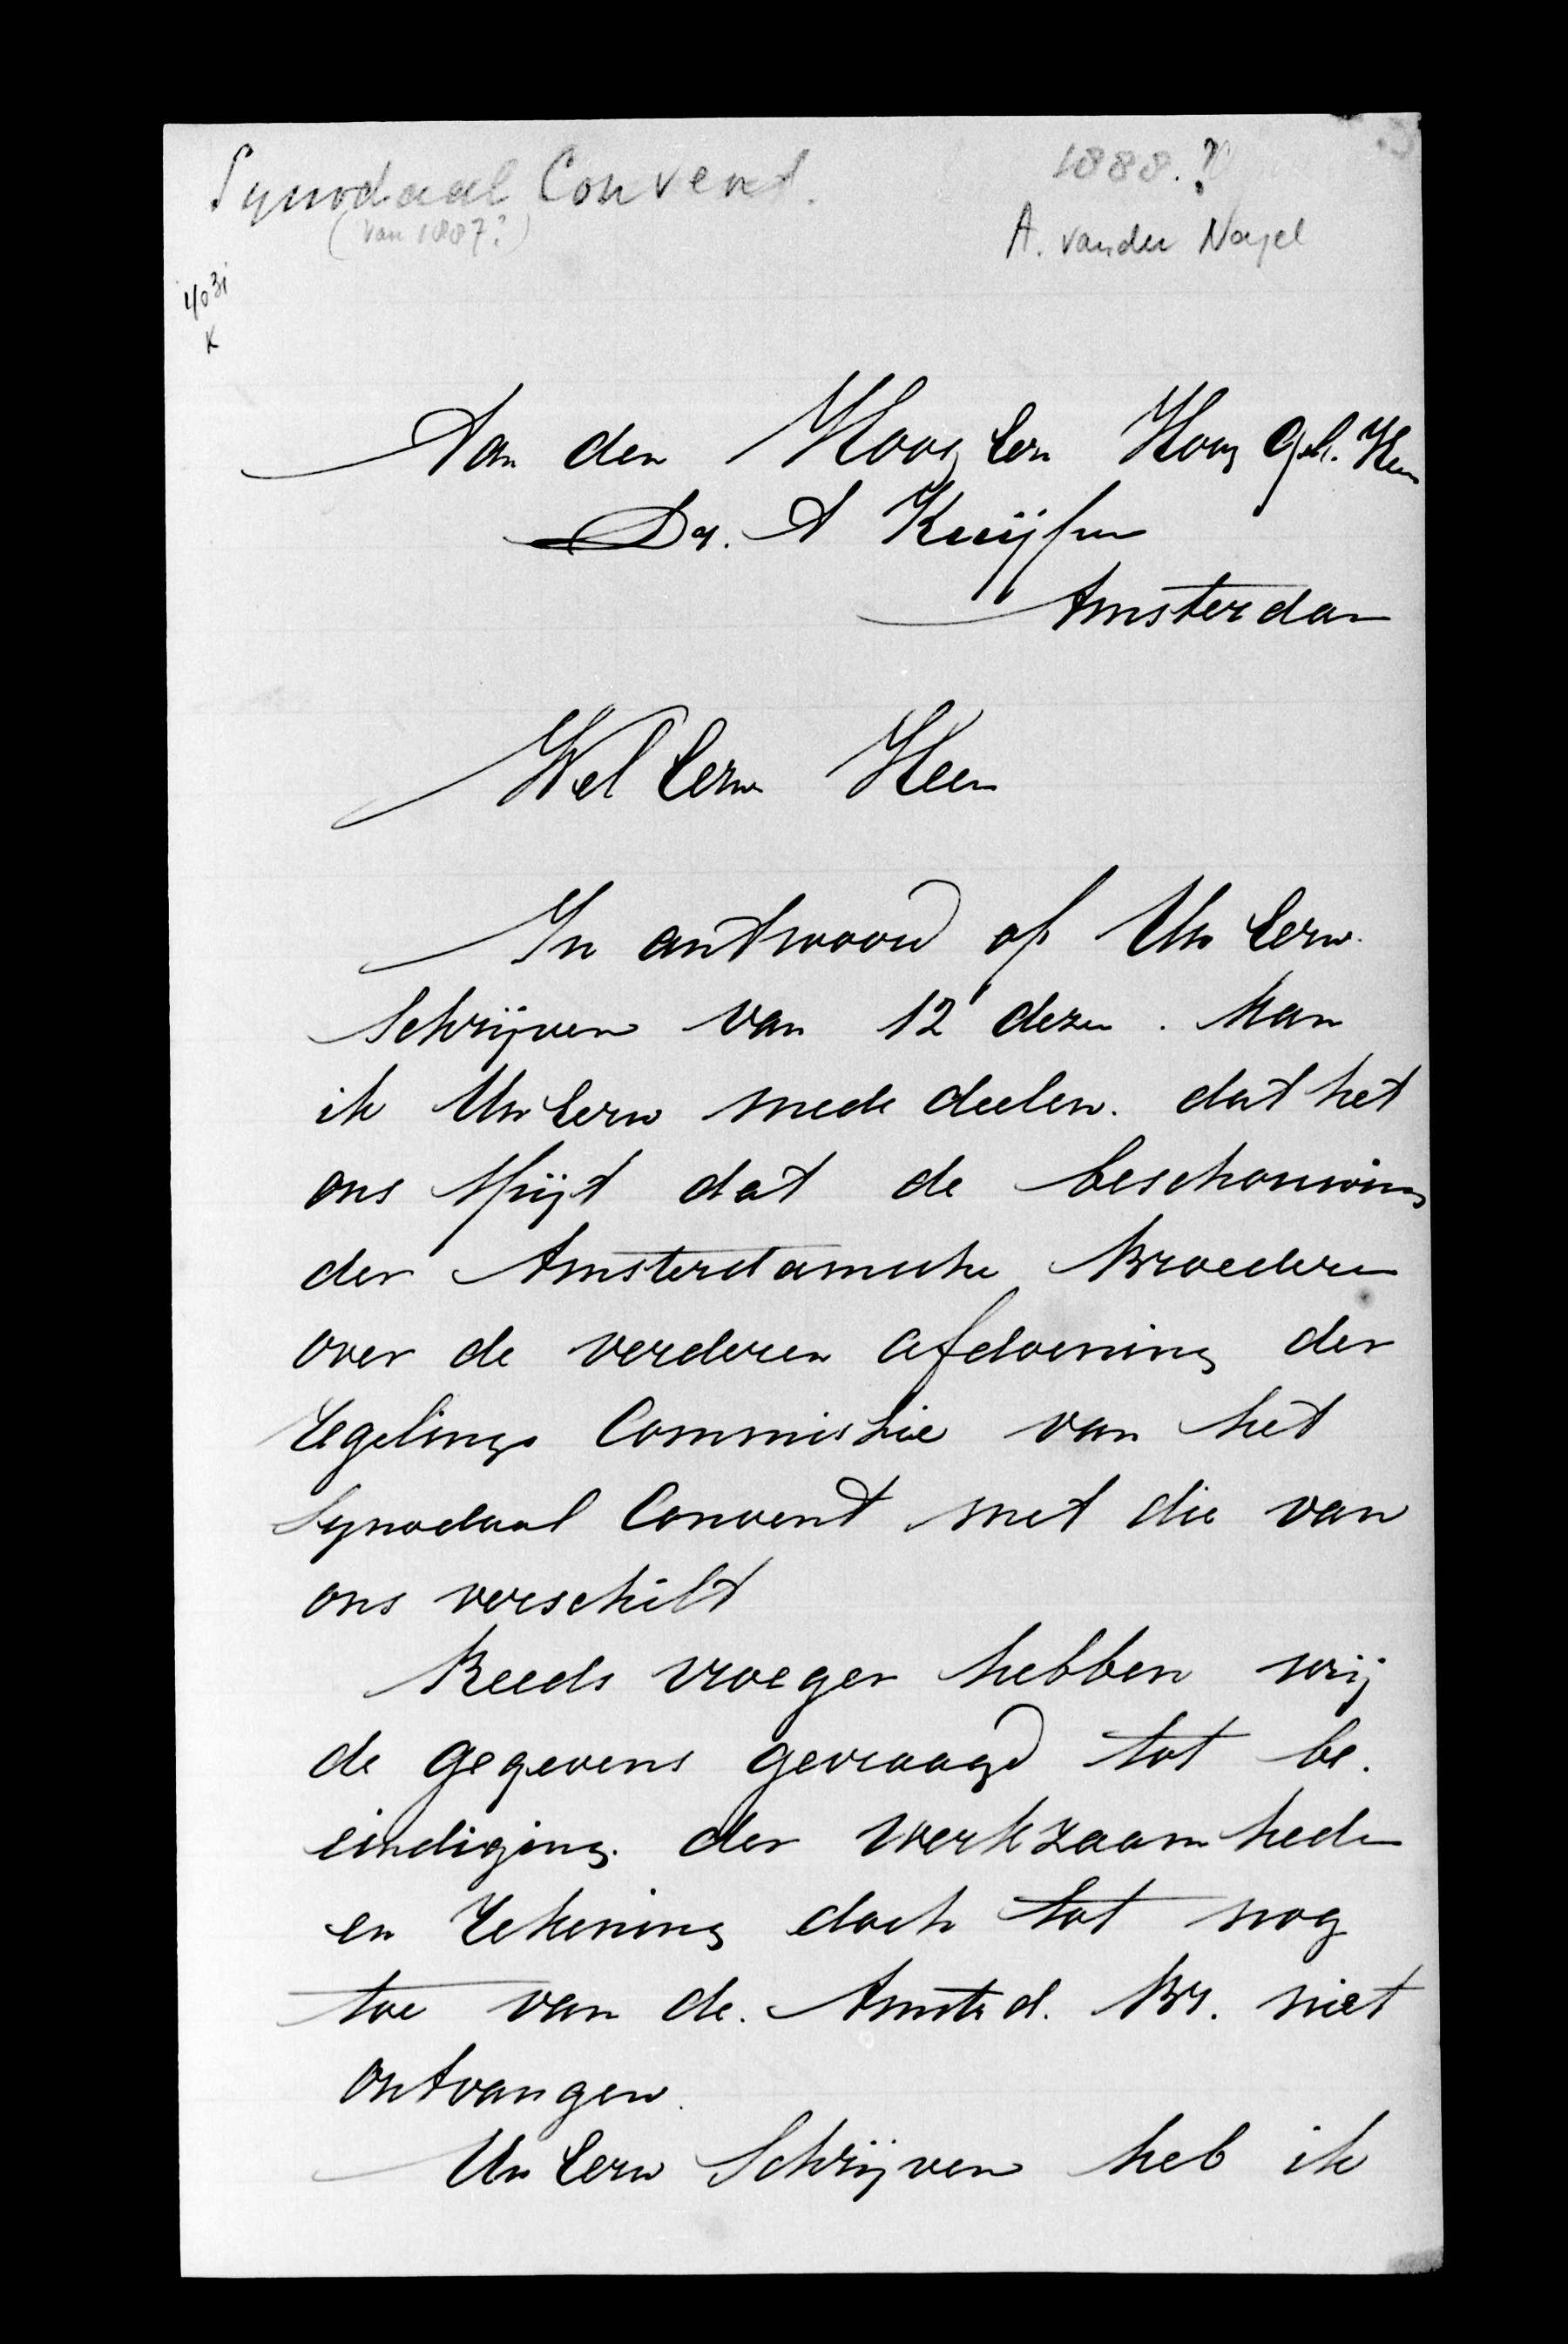 Synodaal Convent.
1888.?
(van 1887?)
A. van der Nagel
4031
K
Aan den Hoog Eerw Hoog Gel. Heer
Dr. A Kuijper
Amsterdam
Wel Eerw Heer
In antwoord op Uw Eerw.
Schrijven van 12 dezer. kan
ik Uw Eerw mede deelen. dat het
ons spijt dat de beschouwing
der Amsterdamsche Broederen
over de verderen afdoening der
regelings Commissie van het
Synodaal Convent met die van
ons verschilt
Reeds vroeger hebben wij
de gegevens gevraagd tot be.
eindiging. der werkzaamheden
en rekening doch tot nog
toe van de. Amsterd. Br. niet
ontvangen.
Uw Eerw Schrijven heb ik